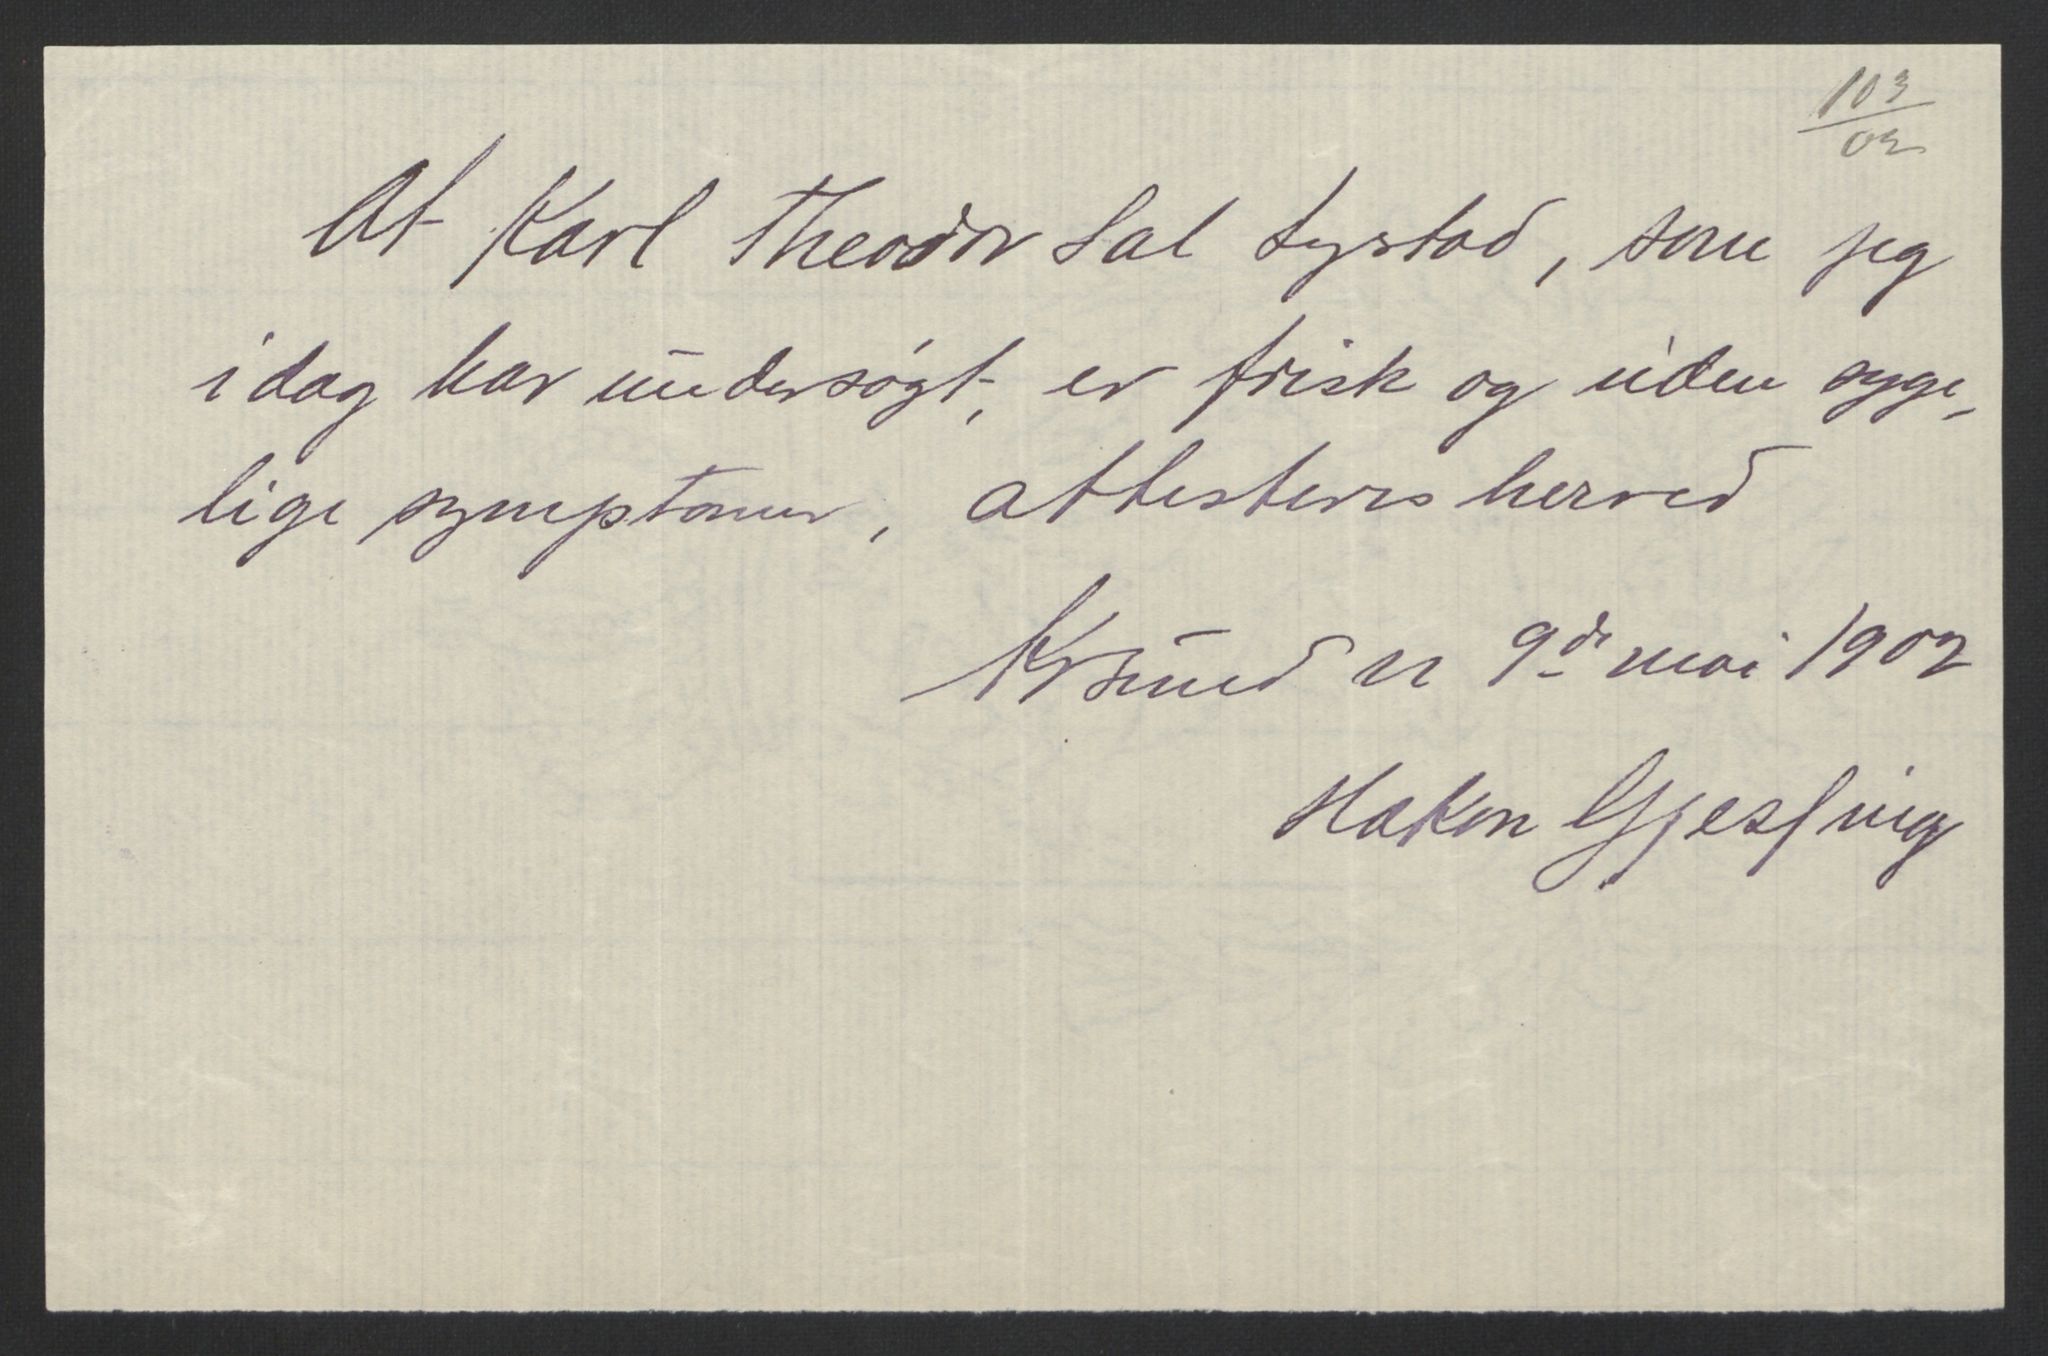 103
02
At Karl Theodor Sal Lystad, som jeg
idag har undersøgt, er frisk og uden syge-
lige symptomer, attesteres herved
Krsund N 9de mai 1902
Hakon Gjessing